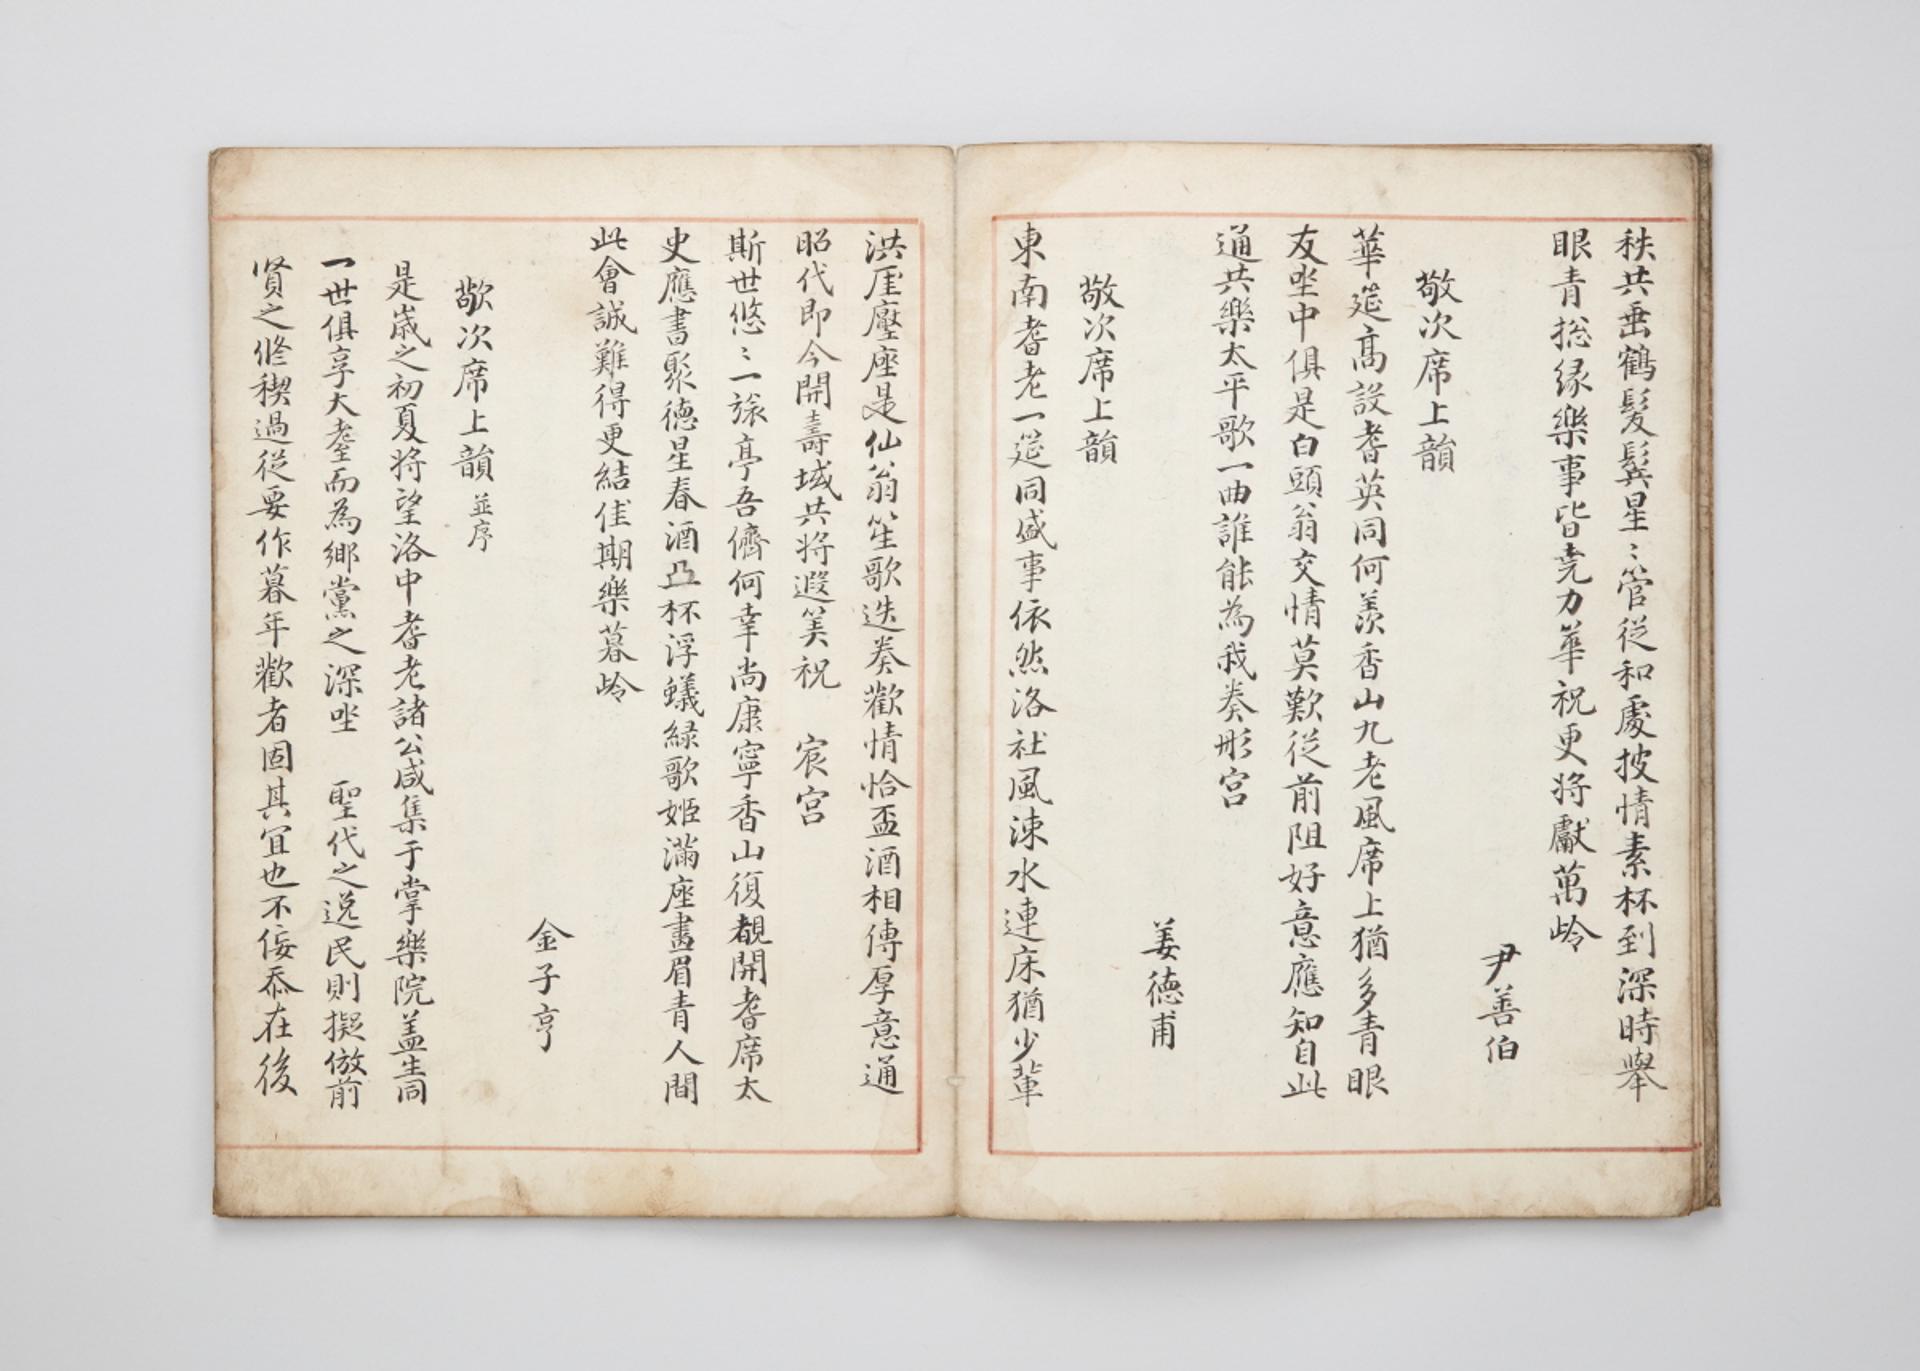 秩共垂鶴髮鬂星〻管從和處披情素杯到深時舉
眼青揔緣樂事皆堯力華祝更將獻萬岭
尹善伯
敬次席上韻
華筵髙設耆英同何羨香山九老風席上猶多青眼
友坐中俱是白頭翁交情莫歎從前阻好意應知自此
通共樂太平歌一曲誰能為我奏彤宮
姜德甫
敬次席上韻
東南耆老一筵同盛事依然洛社風涑水連床猶少輩
洪厓壓座是仙翁笙歌迭奏歡情恰盃酒相傳厚意通
昭代即今開壽域共將遐筭祝 宸宮
斯世悠〻一旅亭吾儕何幸尚康寧香山復覩開耆席太
史應書聚德星春酒亞杯浮蟻綠歌姬滿座畫眉青人間
此會誠難得更結佳期樂暮岭
金子亨
敬次席上韻 並序
是歲之初夏將望洛中耆老諸公咸集于掌樂院盖生同
一世俱享大耋而為鄉黨之深坐 聖代之逸民則擬倣前
賢之修稧過從要作暮年歡者固其冝也不侫忝在後